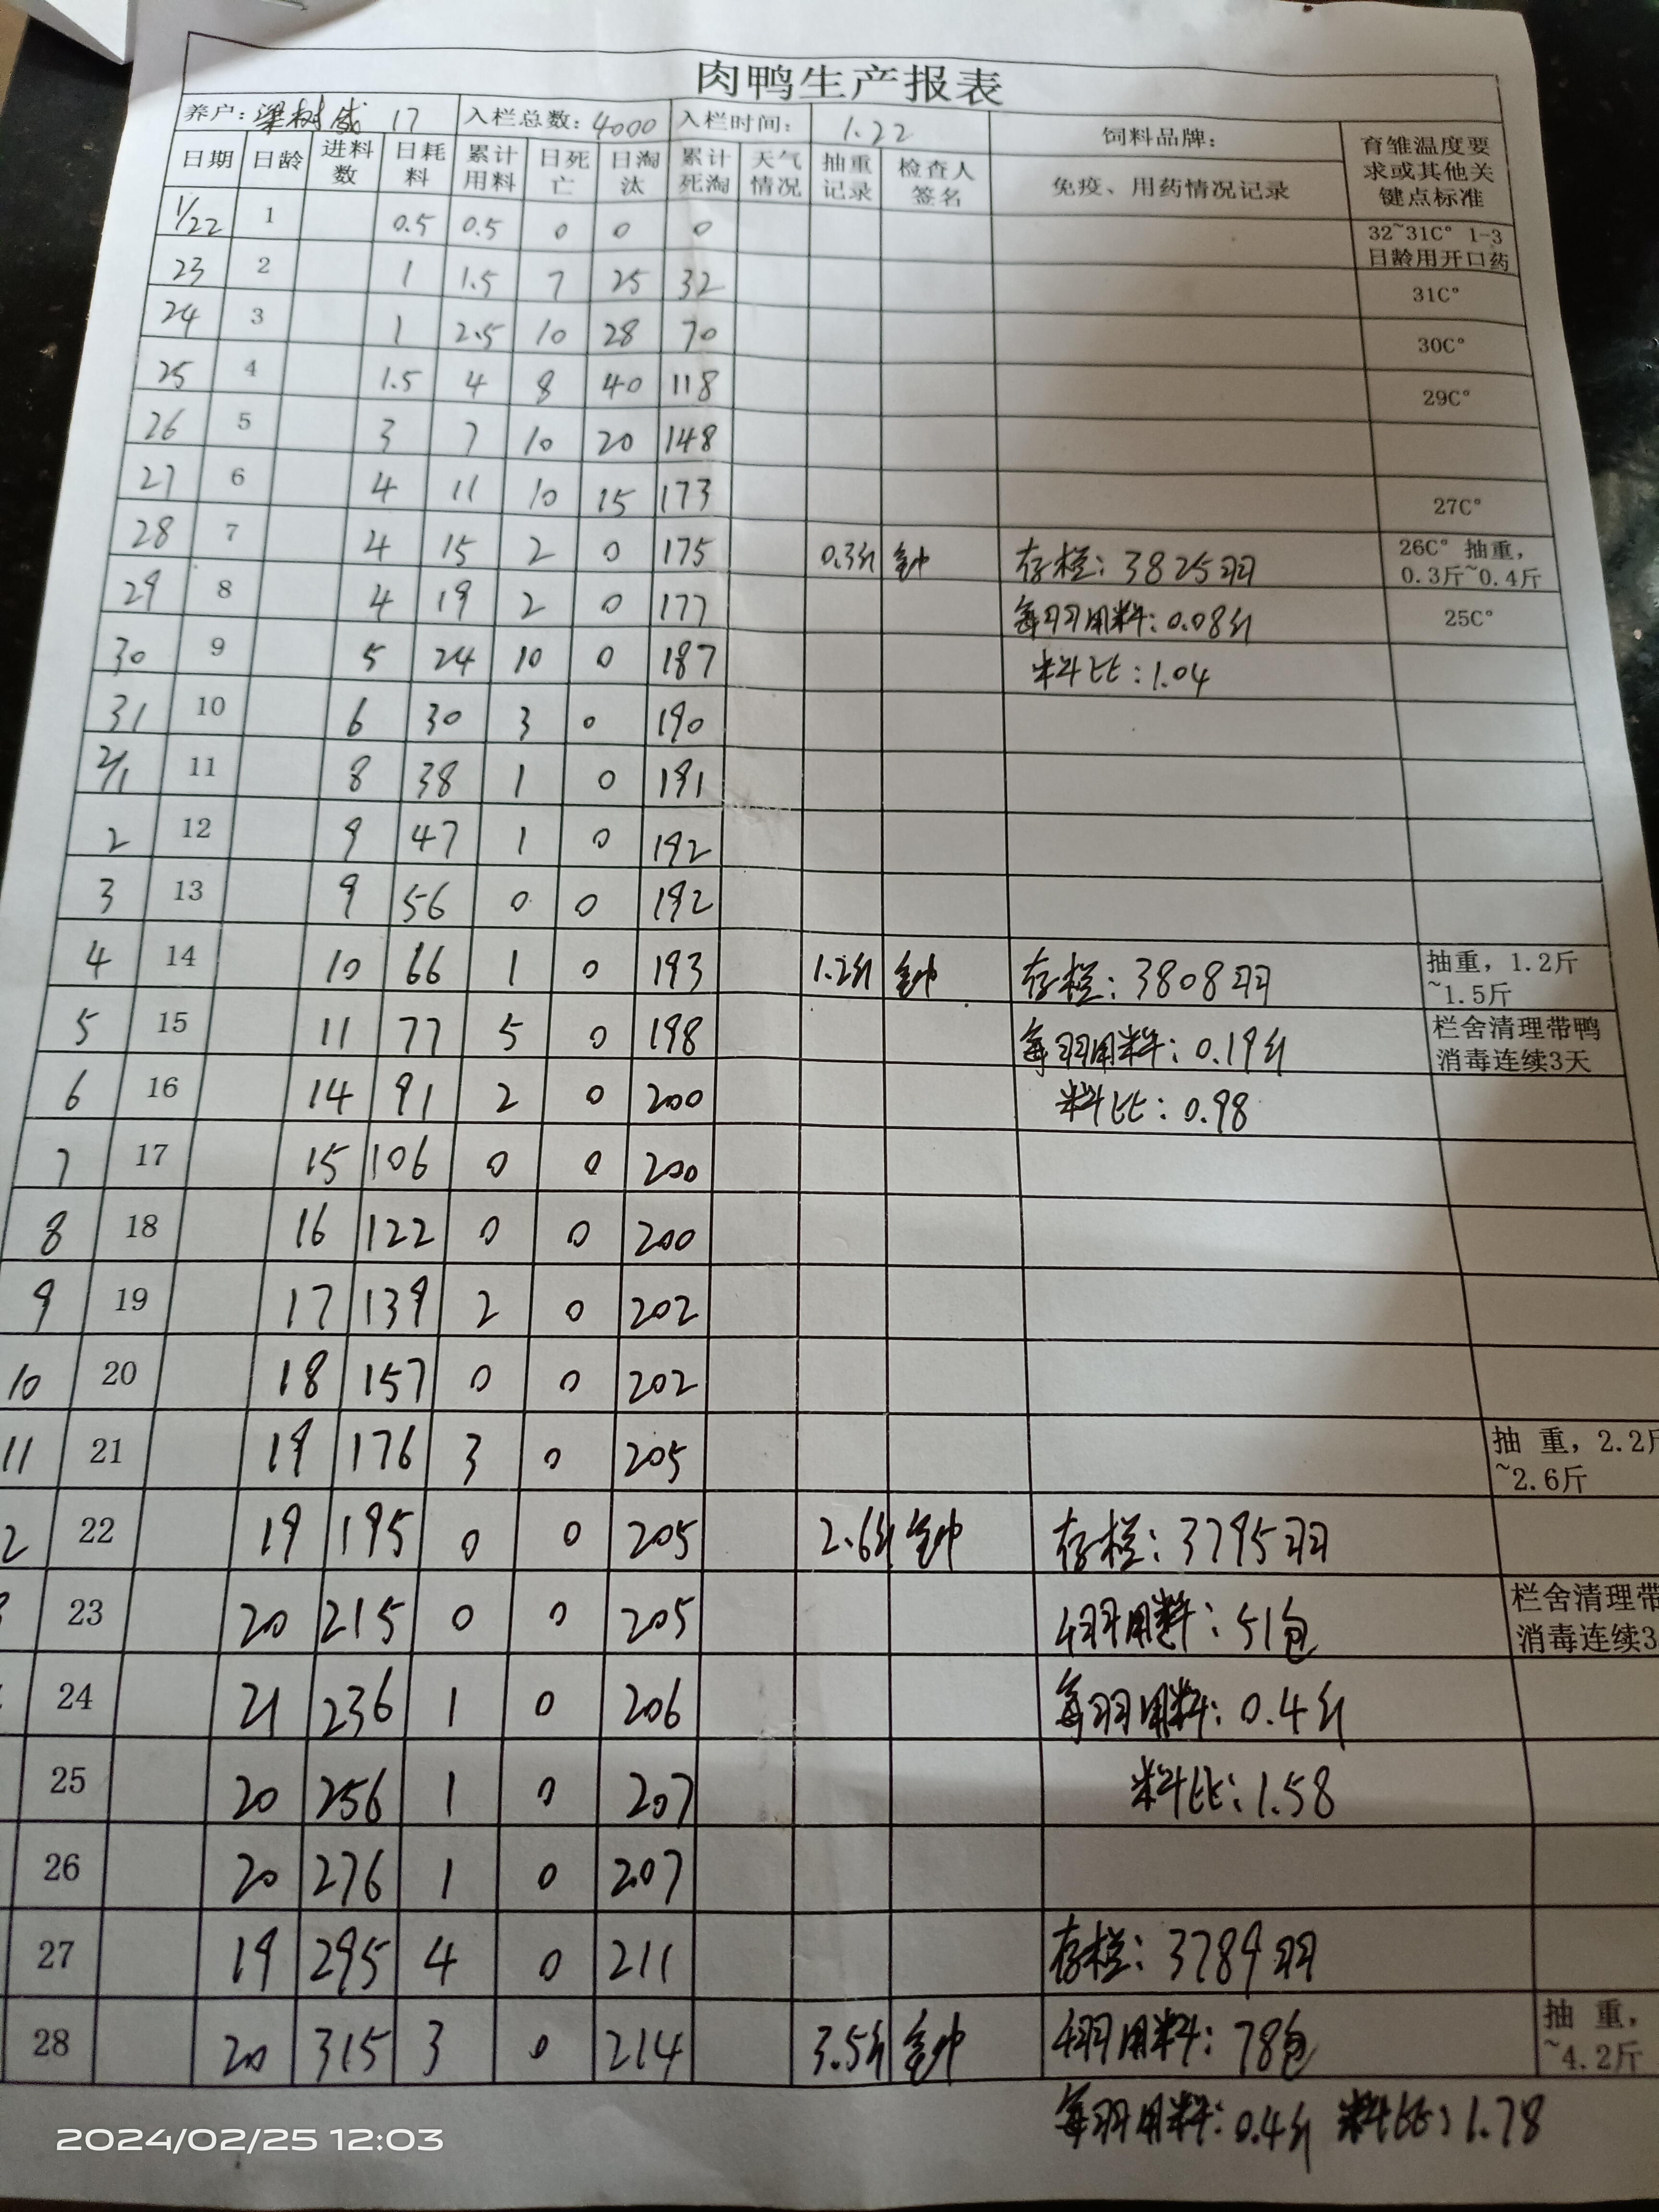 肉鸭生产报表
养户: 梁树威 17 入栏总数: 4000 入栏时间: 1.22 饲料品牌: 育雏温度要求或其他关键点标准
日期 日龄 进料数 日耗料 累计用料 日死亡 日淘汰 累计死淘 天气情况 抽重记录 检查人签名 免疫、用药情况记录
1/22 1 0.5 0.5 0 0 0 32~31C° 1-3日龄用开口药
23 2 1 1.5 7 25 32 31C°
24 3 1 2.5 10 28 70 30C°
25 4 1.5 4 8 40 118 29C°
26 5 3 7 10 20 148
27 6 4 11 10 15 173 27C°
28 7 4 15 2 0 175 0.3斤 存栏: 3825羽 26C° 抽重, 0.3斤~0.4斤
29 8 4 19 2 0 177 每羽用料: 0.08斤 25C°
30 9 5 24 10 0 187 料比: 1.04
31 10 6 30 3 0 190
2/1 11 8 38 1 0 191
2 12 9 47 1 0 192
3 13 9 56 0 0 192
4 14 10 66 1 0 193 1.2斤 存栏: 3808羽 抽重, 1.2斤~1.5斤
5 15 11 77 5 0 198 每羽用料: 0.19斤 栏舍清理带鸭消毒连续3天
6 16 14 91 2 0 200 料比: 0.98
7 17 15 106 0 0 200
8 18 16 122 0 0 200
9 19 17 139 2 0 202
10 20 18 157 0 0 202
11 21 19 176 3 0 205 抽 重, 2.2斤~2.6斤
2 22 19 195 0 0 205 2.6斤 存栏: 3795羽
23 20 215 0 0 205 4羽用料: 51包 栏舍清理带 消毒连续3
24 21 236 1 0 206 每羽用料: 0.4斤
25 20 256 1 0 207 料比: 1.58
26 20 276 1 0 207
27 19 295 4 0 211 存栏: 3789羽
28 20 315 3 0 214 3.5斤 4羽用料: 78包 抽 重, ~4.2斤
每羽用料: 0.4斤 料比: 1.78
2024/02/25 12:03